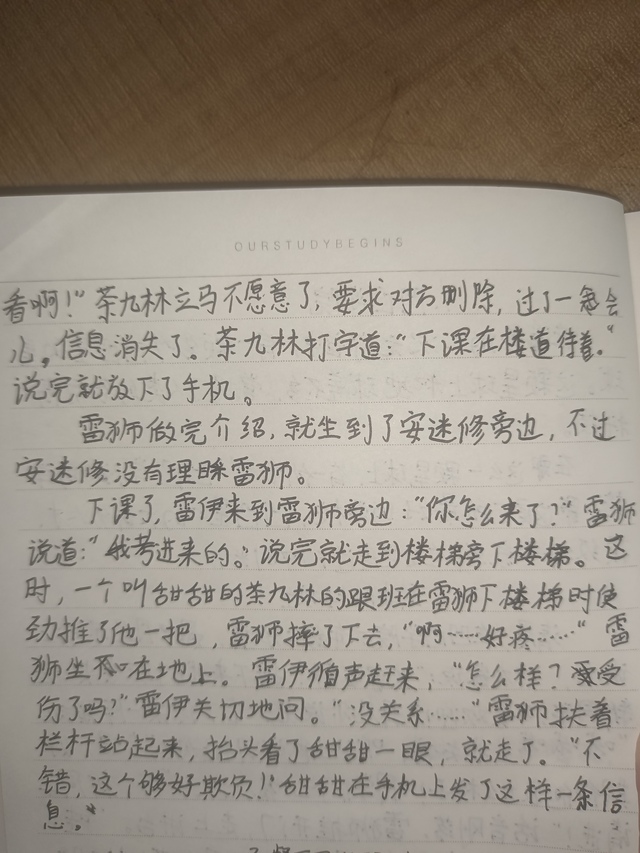 OURSTUDYBEGINS
看啊！”茶九林立马不愿意了，要求对方删除，过了一会
儿，信息消失了。茶九林打字道：“下课在楼道待着。”
说完就放下了手机。
雷狮做完介绍，就坐到了安迷修旁边，不过
安迷修没有理睬雷狮。
下课了，雷伊来到雷狮旁边：“你怎么来了？”雷狮
说道：“我考进来的。”说完就走到楼梯旁下楼梯。这
时，一个叫甜甜的茶九林的跟班在雷狮下楼梯时使
劲推了他一把，雷狮摔了下去，“啊……好疼……”雷
狮坐在地上。雷伊循声赶来，“怎么样？受
伤了吗？”雷伊关切地问。“没关系……”雷狮扶着
栏杆站起来，抬头看了甜甜一眼，就走了。“不
错，这个够好欺负！”甜甜在手机上发了这样一条信
息。